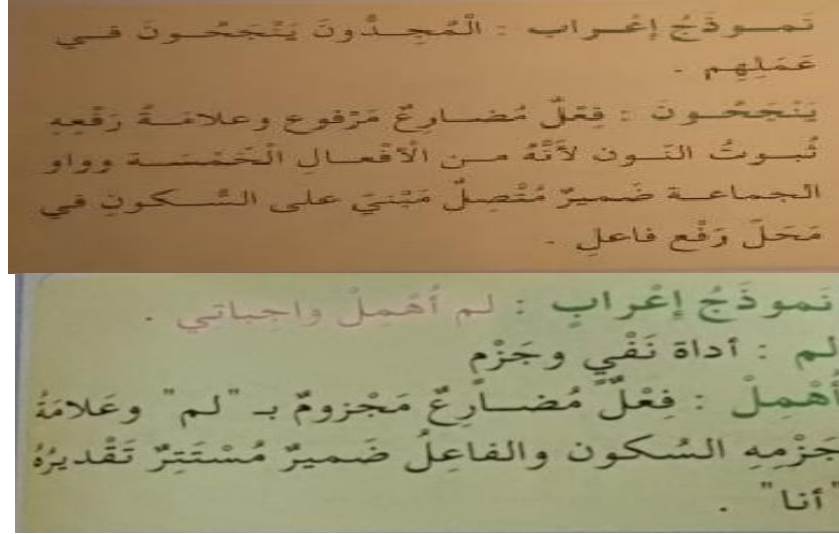 نَمـوذَجُ إعْـراب : الْمُجِـدُّونَ يَنْجَحُـونَ فـي
عَمَلِهِم .
يَنْجَحُـونَ : فِعْلٌ مُضـارِعٌ مَرْفوع وعلامَـةُ رَفْعِهِ
ثُبـوتُ النّـون لأَنَّهُ مـن الْأفْعـالِ الْخَمْسَـة وواو
الجماعـة ضَميرٌ مُتَّصِلٌ مَبْنيَ على السُّـكونِ في
مَحَلَ رَفْع فاعلِ .
نَموذَجُ إعْرابٍ : لم أُهْمِلْ واجباتي .
لم : أداة نَفْي وجَزْم
أُهْمِلْ : فِعْلٌ مُضـارِعٌ مَجْزومٌ بـ "لم" وعَلامَةُ
جَزْمِهِ السُكون والفاعِلُ ضَميرٌ مُسْتَتِرٌ تَقْديرُهُ
"أنا" .